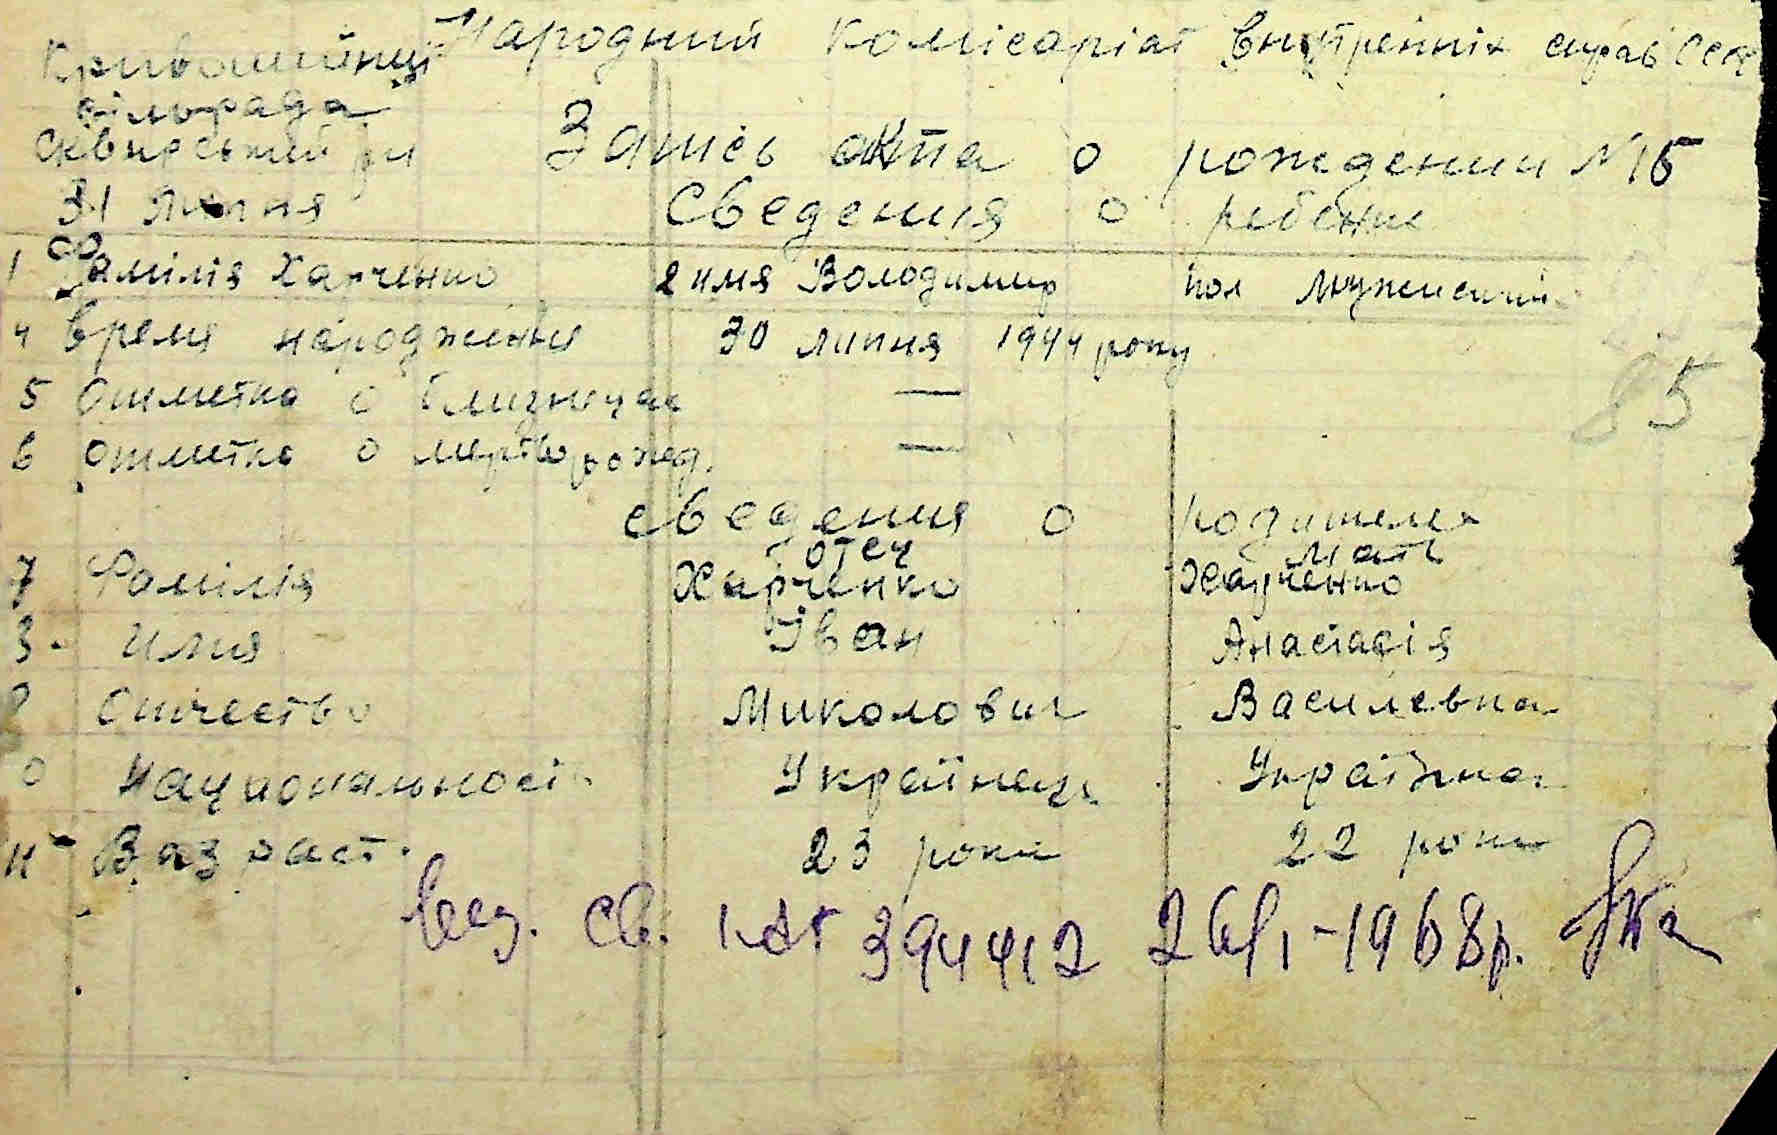 Народний комісаріат внутренніх справ ССР
Кривошийнці
сільрада
Сквирський р-н
31 липня
Запись акта о рождении N 15
Сведения о ребенке
1 Фамілія Харченко 2 имя Володимир пол Мужеский
4 Время народження 30 липня 1944 року
5 Отметка о близнецах —
85
6 Отметка о мертворожд. —
Сведения о родителях
Отец Мать
7 Фамілія Харченко Харченко
Имя Іван Анастасія
Отчество Миколович Василевна
0 Национальность Українець Українка
11 Вазраст. 23 роки 22 роки
св. 394412 1968р.